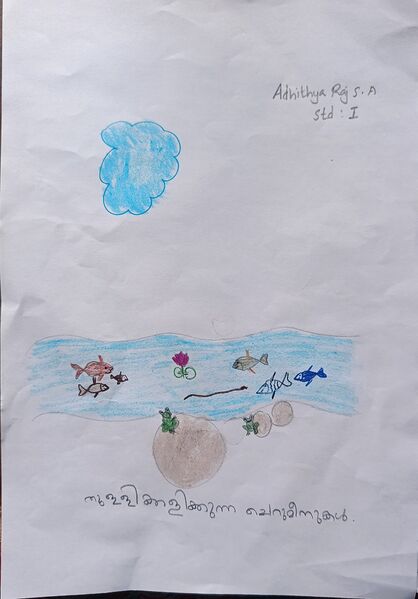 Adhithya Raj S.A
Std : I
തുള്ളിക്കളിക്കുന്ന ചെറുമീനുകൾ.